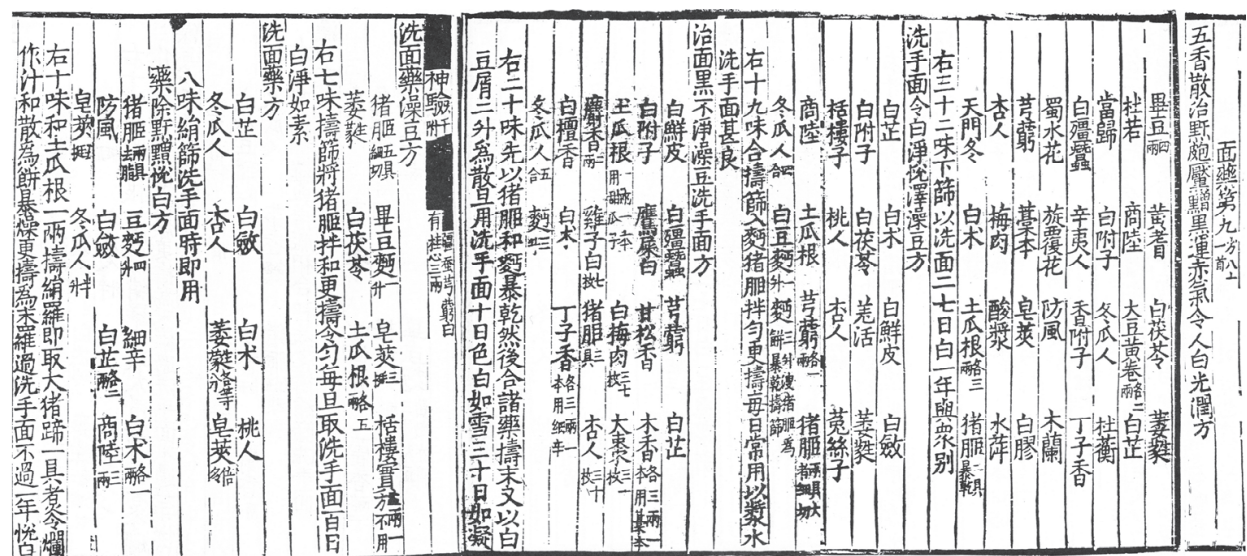 面藥第九 方八十一首
五香散治䵟皰黡黯黑運赤氣令人白光潤方
畢豆 四兩 黃耆 白茯苓 萎蕤
杜若 商陸 大豆黃卷 各二兩 白芷
當歸 白附子 冬瓜人 杜蘅
白殭蠶 辛夷人 香附子 丁子香
蜀水花 旋覆花 防風 木蘭
芎藭 藁本 皂莢 白膠
杏人 梅肉 酸漿 水萍
天門冬 白朮 土瓜根 各三兩 猪胰 二具暴乾
右三十二味下篩以洗面二七日白一年與眾別
洗手面令白淨悅澤澡豆方
白芷 白朮 白鮮皮 白斂
白附子 白茯苓 羌活 萎蕤
栝樓子 桃人 杏人 菟絲子
商陸 土瓜根 芎藭 各一兩 猪胰 兩具大者細切
冬瓜人 四合 白豆麪 一升 麪 三升溲猪胰為餅暴乾擣篩
右十九味合擣篩入麪猪胰拌勻更擣每日常用以漿水
洗手面甚良
治面黑不淨澡豆洗手面方
白鮮皮 白殭蠶 芎藭 白芷
白附子 鷹屎白 甘松香 木香 各三兩一本用藁本
土瓜根 一兩一本用甜瓜子 白梅肉 三七枚 大棗 三十枚
麝香 二兩 雞子白 七枚 猪胰 三具 杏人 三十枚
白檀香 白朮 丁子香 各三兩一本用細辛
冬瓜人 五合 麪 三升
右二十味先以猪胰和麪暴乾然後合諸藥擣末又以白
豆屑二升為散旦用洗手面十日色白如雪三十日如凝
脂神驗 有殭蠶芎藭白附桂心三兩
洗面藥澡豆方
猪胰 五具細切 畢豆麪 一升 皂莢 三挺 栝樓實 三兩一方不用
萎蕤 白茯苓 土瓜根 各五兩
右七味擣篩將猪胰拌和更擣令勻每旦取洗手面百日
白淨如素
洗面藥方
白芷 白斂 白朮 桃人
冬瓜人 杏人 萎蕤 各等分 皂莢 倍多
八味絹篩洗手面時即用
藥除䵟䵴悅白方
猪胰 兩具去脂 豆麪 四升 細辛 白朮 各一兩
防風 白斂 白芷 各二兩 商陸 三兩
皂莢 五挺 冬瓜人 半升
右十味和土瓜根一兩擣絹羅即取大猪蹄一具煮令爛
作汁和散為餅暴燥更擣為末羅過洗手面不過一年悅白